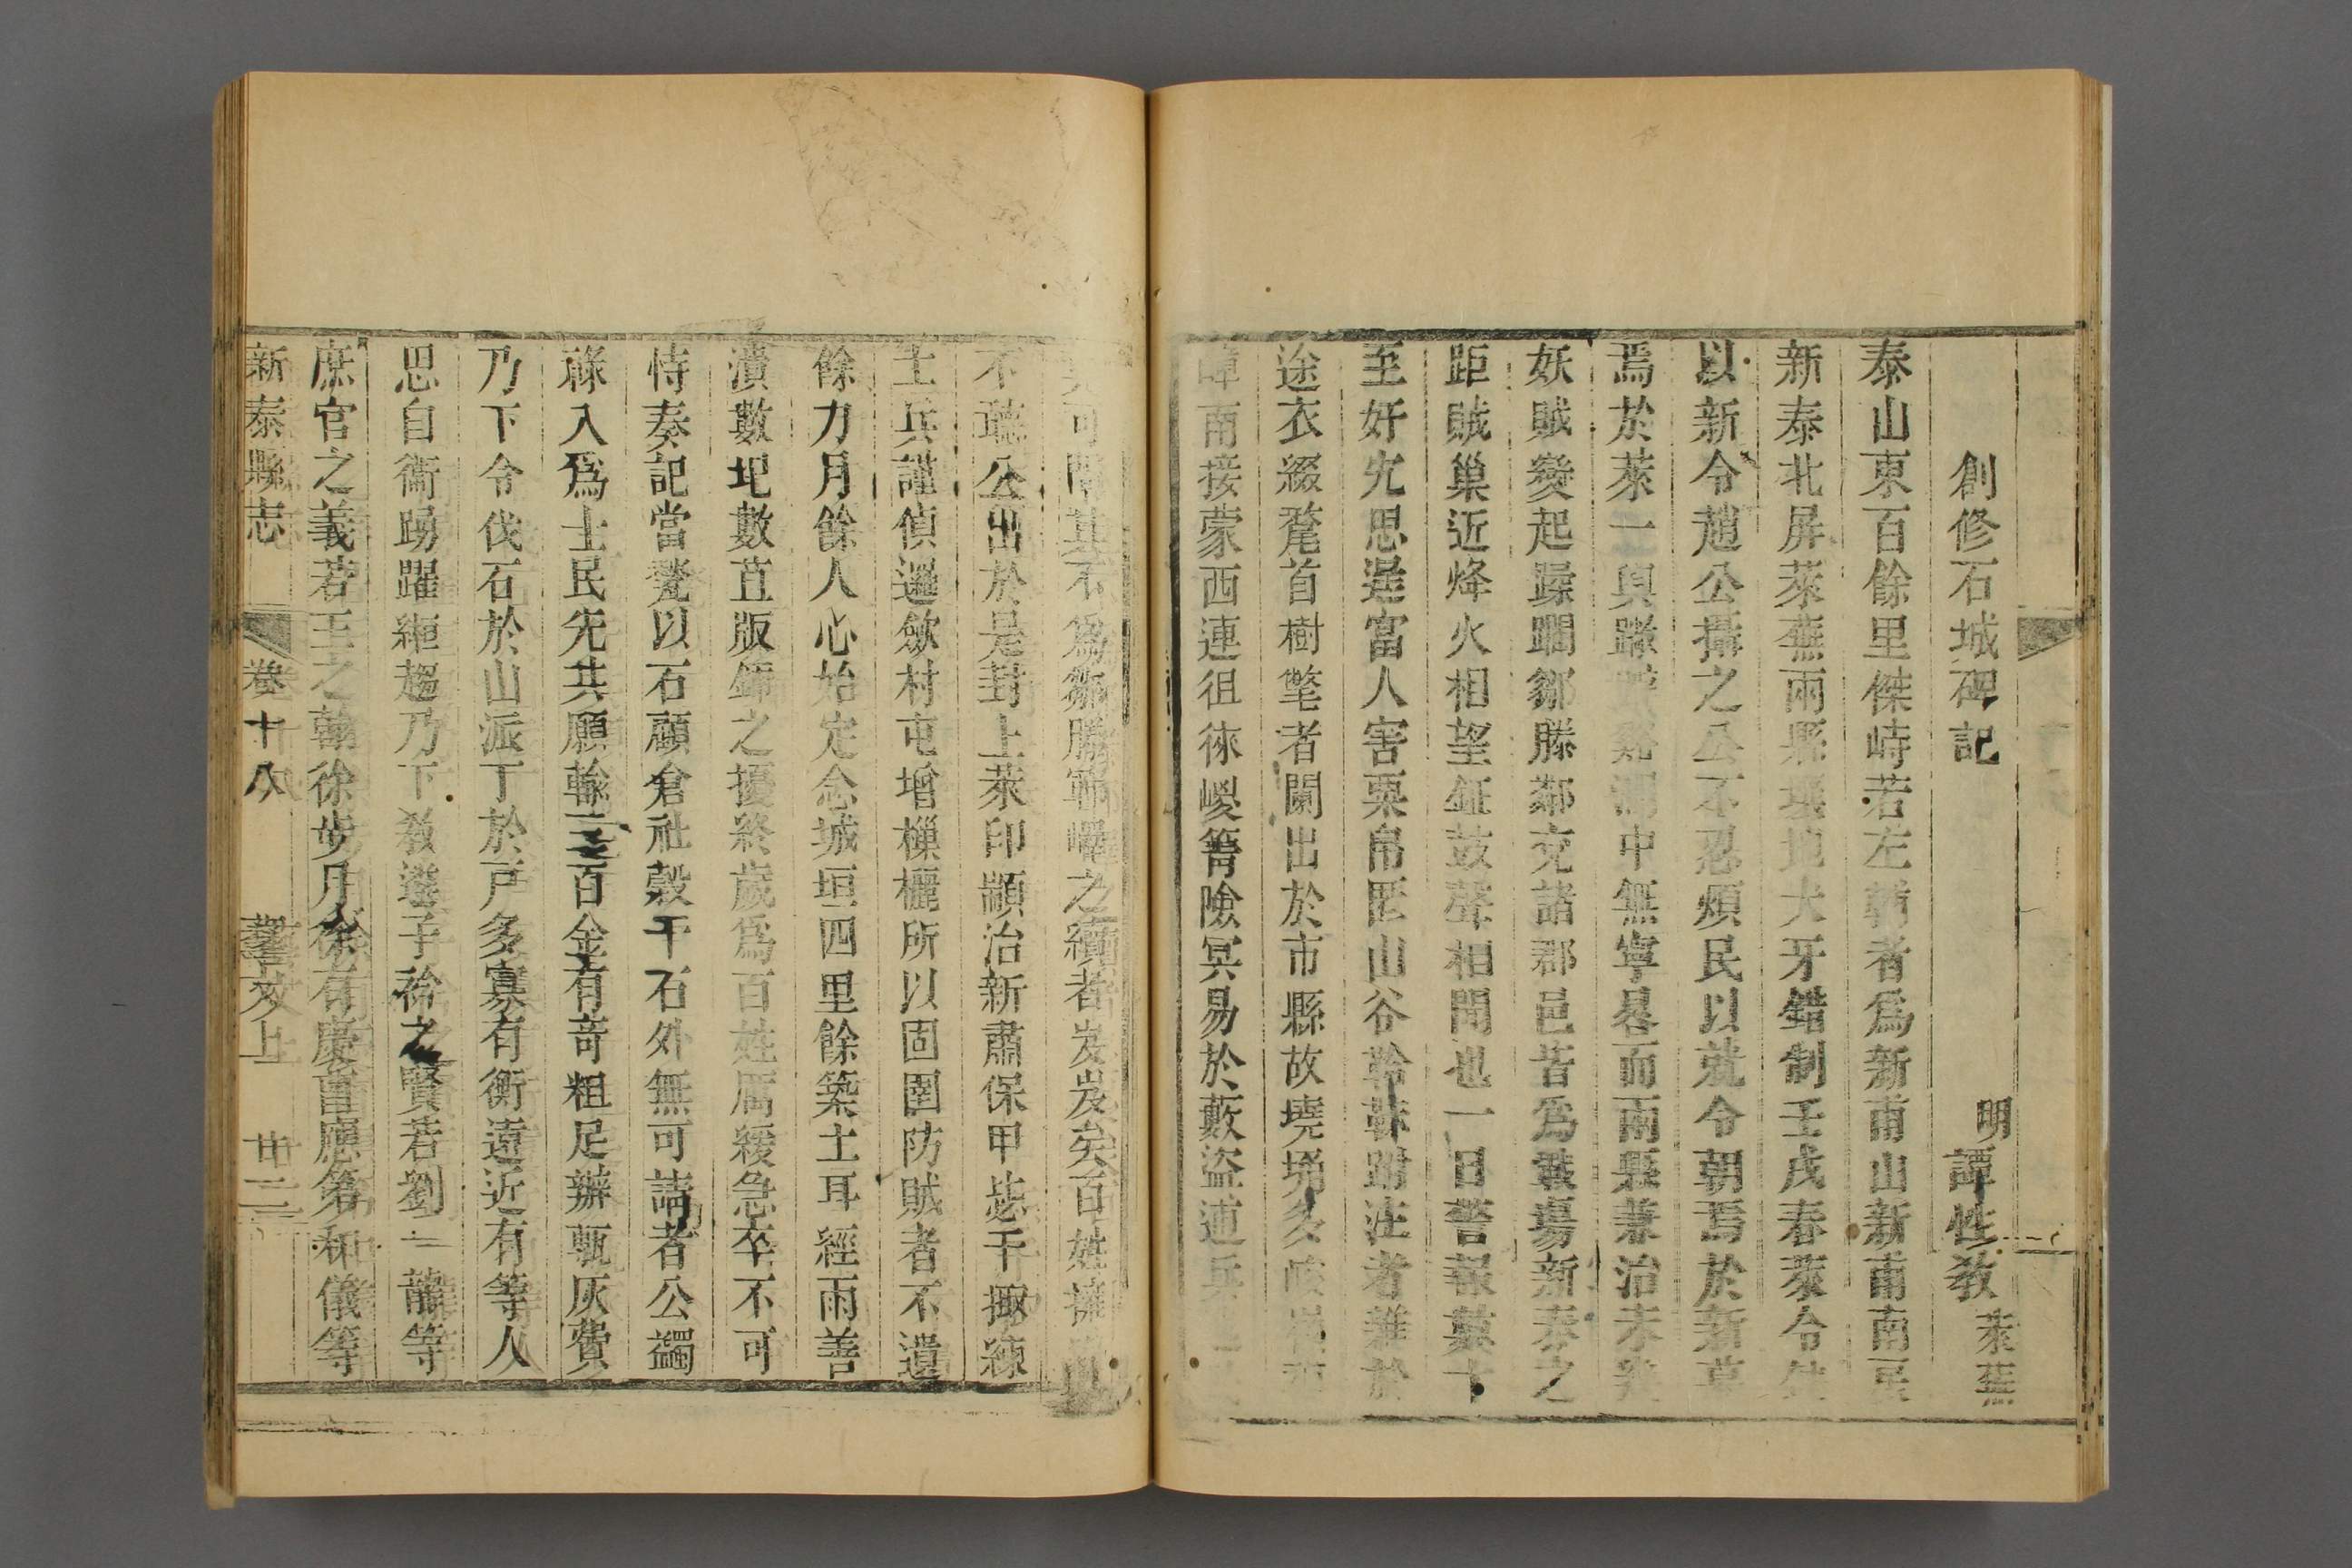 創修石城碑記
明譚性教萊蕪
泰山東百餘里傑峙若左輔者爲新甫山新甫南爲
新泰北屏萊蕪兩縣壤地犬牙錯制壬戌春萊令缺
以新令趙公攝之公不忍煩民以就令朝焉於新莫
焉於萊一輿蹀中無寧晷而兩縣兼治未幾
妖賊變起蹂躪鄒滕鄰兗諸郡邑皆爲戰場新泰之
距賊巢近烽火相望鉦鼓聲相聞也一日警報數十
至奸宄思逞富人害粟帛匿山谷韎韐跗注者雜於
途衣綴髦首樹氅者闌出於市縣故墝埆多
嶂南接蒙西連徂徠嵕箐險冥易於藪盜逋
爲鄒滕之續者岌岌矣百姓
不聽公出於是封上萊印顓治新肅保甲毖干掫練
士兵謹偵邏斂村屯增樔櫳所以固圉防賊者不遺
餘力月餘人心始定念城垣四里餘築土耳經雨善
潰數圯數苴版鍤之擾終歲爲百姓厲緩急卒不可
恃奏記當甃以石顧倉社穀干石外無可請者公蠲
祿入爲士民先共願輸三百金有奇粗足辦甎灰費
乃下令伐石於山派丁於戶多寡有衡遠近有等人
思自衞踴躍絙趨乃下教選子衿之賢若劉一龍等
庶官之義若王之翰徐步月徐有慶曹應第和儀等
新泰縣志　卷十八　藝文上　廿二